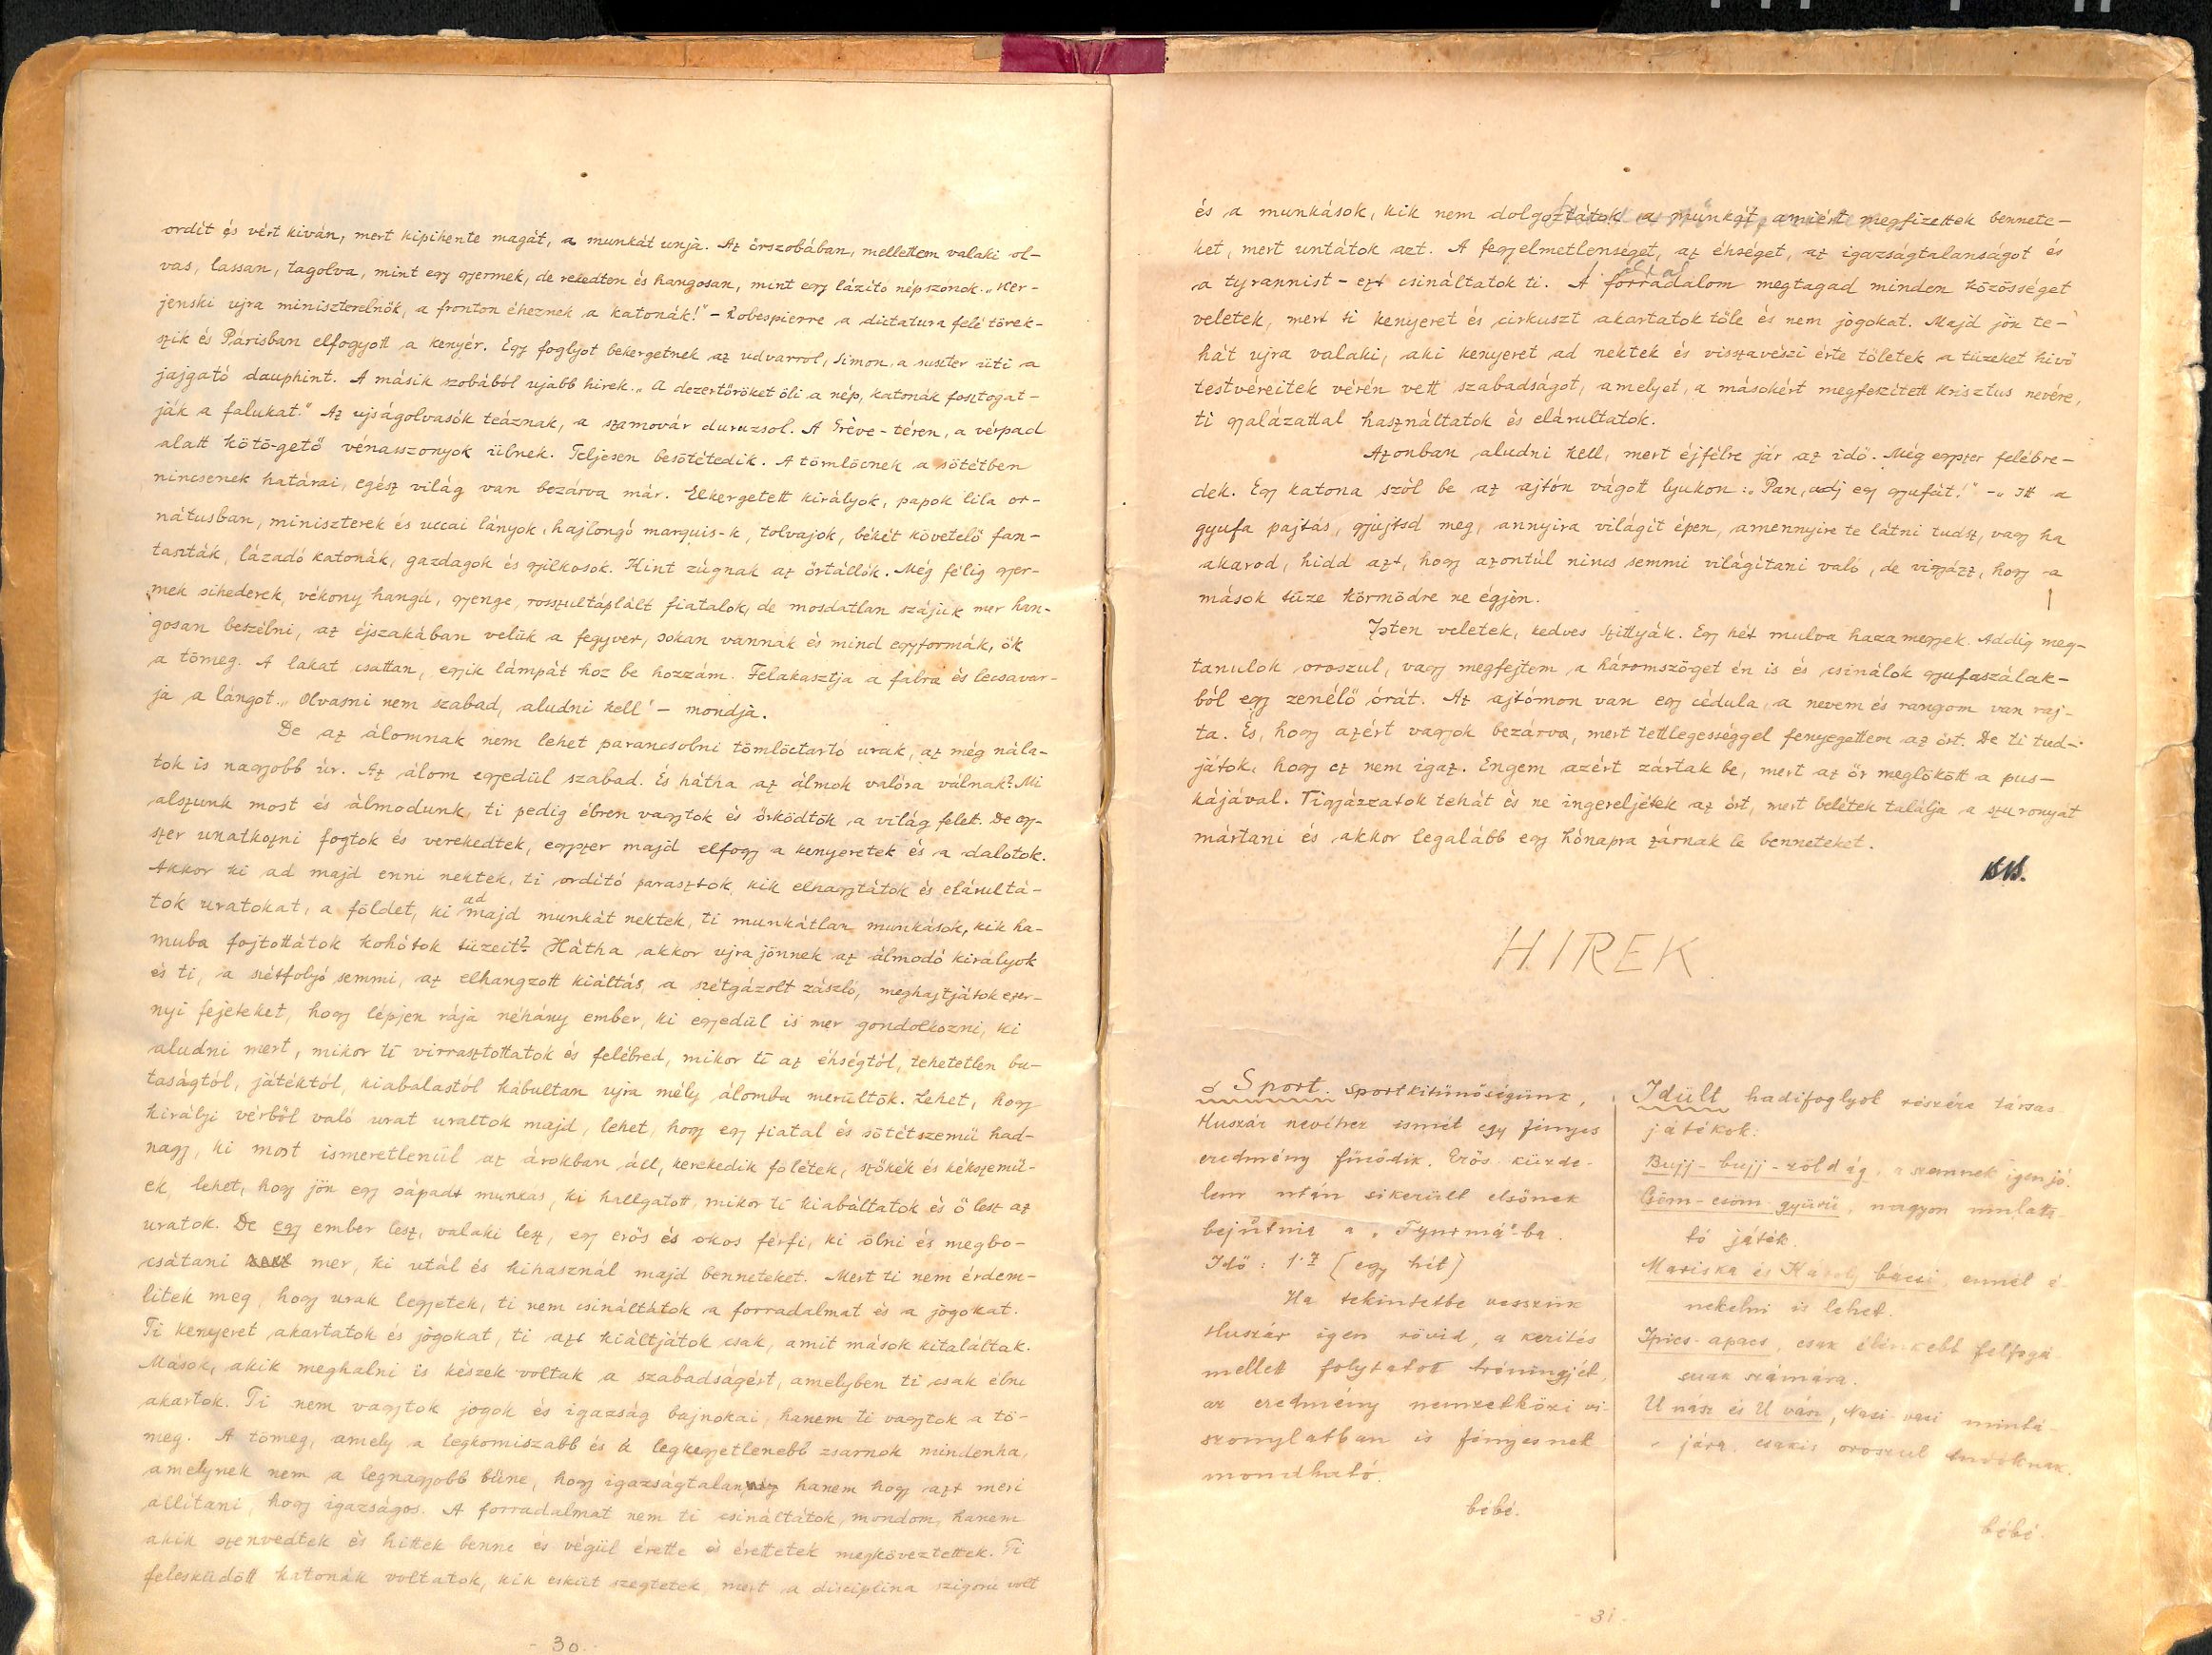 ordít és vért kiván, mert kipihente magát, a munkát unja. Az őrszobában, mellettem valaki ol-
vas, lassan, tagolva, mint egy gyermek, de rekedten és hangosan, mint egy lázító népszónok. „Ker-
jenski ujra miniszterelnök, a fronton éheznek a katonák!" – Robespierre a dictatura felé törek-
szik és Párisban elfogyott a kenyér. Egy foglyot bekergetnek az udvarrol, Simon, a suszter üti a
jajgató dauphint. A másik szobából ujabb hirek. „A dezertőröket öli a nép, katonák fosztogat-
ják a falukat." Az ujságolvasók teáznak, a szamovár duruzsol. A Grève-téren, a vérpad
alatt kötö-gető vénasszonyok ülnek. Teljesen besötétedik. A tömlöcnek a sötétben
nincsenek határai, egész világ van bezárva már. Elkergetett királyok, papok lila or-
nátusban, miniszterek és uccai lányok, hajlongó marquis-k, tolvajok, békét követelő fan-
taszták, lázadó katonák, gazdagok és gyilkosok. Kint zúgnak az őrtállók. Még félig gyer-
mek sihederek, vékony hangú, gyenge, rosszultáplált fiatalok, de mosdatlan szájuk mer han-
gosan beszélni, az éjszakában velük a fegyver, sokan vannak és mind egyformák, ők
a tömeg. A lakat csattan, egyik lámpát hoz be hozzám. Felakasztja a falra és lecsavar-
ja a lángot. „Olvasni nem szabad, aludni kell' – mondja.
De az álomnak nem lehet parancsolni tömlöctartó urak, az még nála-
tok is nagyobb úr. Az álom egyedül szabad. És hátha az álmok valóra válnak? Mi
alszunk most és álmodunk, ti pedig ébren vagytok és őrködtök a világ felet. De egy-
szer unatkozni fogtok és verekedtek, egyszer majd elfogy a kenyeretek és a dalotok.
Akkor ki ad majd enni nektek, ti ordító parasztok, kik elhagytátok és elárultá-
tok uratokat, a földet, ki ad majd munkát nektek, ti munkátlan munkások, kik ha-
muba fojtottátok kohótok tüzeit? Hátha akkor ujra jönnek az álmodó királyok
és ti, a szétfolyó semmi, az elhangzott kiáltás, a szétgázolt zászló, meghajtjátok ezer-
nyi fejeteket, hogy lépjen rája néhány ember, ki egyedül is mer gondolkozni, ki
aludni mert, mikor ti virrasztottatok és felébred, mikor ti az éhségtól, tehetetlen bu-
taságtól, játéktól, kiabalastól kábultan ujra mély álomba merültök. Lehet, hogy
királyi vérből való urat uraltok majd, lehet, hogy egy fiatal és sötétszemü had-
nagy, ki most ismeretlenül az árokban áll, kerekedik fölétek, szőkék és kékszemü-
ek, lehet, hogy jön egy sápadt munkas, ki hallgatott, mikor ti kiabáltatok és ő lesz az
uratok. De egy ember lesz, valaki lesz, egy erős és okos férfi, ki ölni és megbo-
csátani mer, ki utál és kihasznál majd benneteket. Mert ti nem érdem-
litek meg, hogy urak legyetek, ti nem csináltátok a forradalmat és a jogokat.
Ti kenyeret akartatok és jogokat, ti azt kiáltjátok csak, amit mások kitaláltak.
Mások, akik meghalni is készek voltak a szabadságért, amelyben ti csak élni
akartok. Ti nem vagytok jogok és igazság bajnokai, hanem ti vagytok a tö-
meg. A tömeg, amely a legkomiszabb és a legkegyetlenebb zsarnok mindenha,
amelynek nem a legnagyobb büne, hogy igazságtalan, hanem hogy azt meri
állítani, hogy igazságos. A forradalmat nem ti csináltátok, mondom, hanem
akik szenvedtek és hittek benne és végül érette és érettetek megköveztettek. Ti
felesküdött katonák voltatok, kik esküt szegtetek, mert a disciplina szigorú volt
- 30. -
és a munkások, kik nem dolgoztátok a munkát, amiért megfizettek bennete-
ket, mert untátok azt. A fegyelmetlenséget, az éhséget, az igazságtalanságot és
a tyrannist – ezt csináltatok ti. A forradalom megtagad minden közösséget
veletek, mert ti kenyeret és cirkuszt akartatok tőle és nem jogokat. Majd jön te-
hát ujra valaki, aki kenyeret ad nektek és visszavészi érte töletek a tüzeket hivő
testvéreitek vérén vett szabadságot, amelyet, a másokért megfeszített Krisztus nevére,
ti gyalázattal használtatok és elárultatok.
Azonban aludni kell, mert éjfélre jár az idő. Még egyszer felébre-
dek. Egy katona szól be az ajtón vágott lyukon: „Pan, adj egy gyufát!" – „Itt a
gyufa pajtás, gyujtsd meg, annyira világít épen, amennyire te látni tudsz, vagy ha
akarod, hidd azt, hogy azontúl nincs semmi világítani való, de vigyázz, hogy a
mások tüze körmödre ne égjen.
Isten veletek, kedves szittyák. Egy hét mulva haza megyek. Addig meg-
tanulok oroszul, vagy megfejtem a háromszöget én is és csinálok gyufaszálak-
ból egy zenélő órát. Az ajtómon van egy cédula, a nevem és rangom van raj-
ta. És, hogy azért vagyok bezárva, mert tettlegességgel fenyegettem az őrt. De ti tud-
játok, hogy ez nem igaz. Engem azért zártak be, mert az őr meglökött a pus-
kájával. Vigyázzatok tehát és ne ingereljétek az őrt, mert belétek találja a szuronyát
mártani és akkor legalább egy hónapra zárnak be benneteket.
HIREK.
Sport. sportkitünőségünk,
Huszár nevéhez ismét egy fényes
eredmény fűződik. Erős küzde-
lem után sikerült elsőnek
bejutnia a „Tyurmá"-ba.
Idő: 1.7 (egy hét)
Ha tekintetbe vesszük
Huszár igen rövid, a kerítés
mellett folytatott tréningjét,
az eredmény nemzetközi vi-
szonylatban is fényesnek
mondható.
bébé.
Idült hadifoglyok részére társas
játékok:
Bujj-bujj-zöldág, a szemnek igen jó.
Csöm-csöm gyürü, nagyon mulatta-
tó játék.
Mariska és Károly bácsi, ennél é-
nekelni is lehet.
Ipics-apacs, csak élénkebb felfogá-
suak számára.
U nász és U vász, Naci-vaci mintá-
jára, csakis oroszul tudóknak.
bébé.
- 31 -